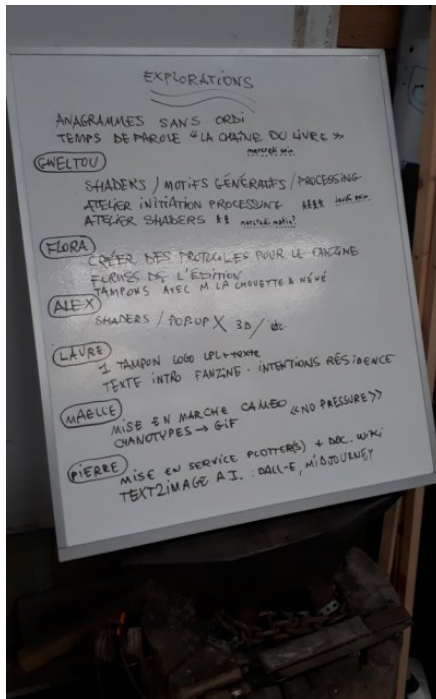 EXPLORATIONS
ANAGRAMMES SANS ORDI
TEMPS DE PAROLE "LA CHAÎNE DU LIVRE"
mercredi soir
GWELTOU
SHADERS / MOTIFS GÉNÉRATIFS / PROCESSING
ATELIER INITIATION PROCESSING **** jeudi soir
ATELIER SHADERS ** mercredi matin?
FLORA
CRÉER DES PROTOCOLES POUR LE FANZINE
FORMES DE L'ÉDITION
TAMPONS AVEC M. LA CHOUETTE & NÉNÉ
ALEX
SHADERS / POP.UP X 3D / etc
LAURE
1 TAMPON LOGO LPL + texte
TEXTE INTRO FANZINE. INTENTIONS RÉSIDENCE
MAELLE
MISE EN MARCHE CAMEO «NO PRESSURE»
CYANOTYPES → GIF
PIERRE
MISE EN SERVICE PLOTTER(S) + DOC. WIKI
TEXT2IMAGE A.I. : DALL-E, MIDJOURNEY